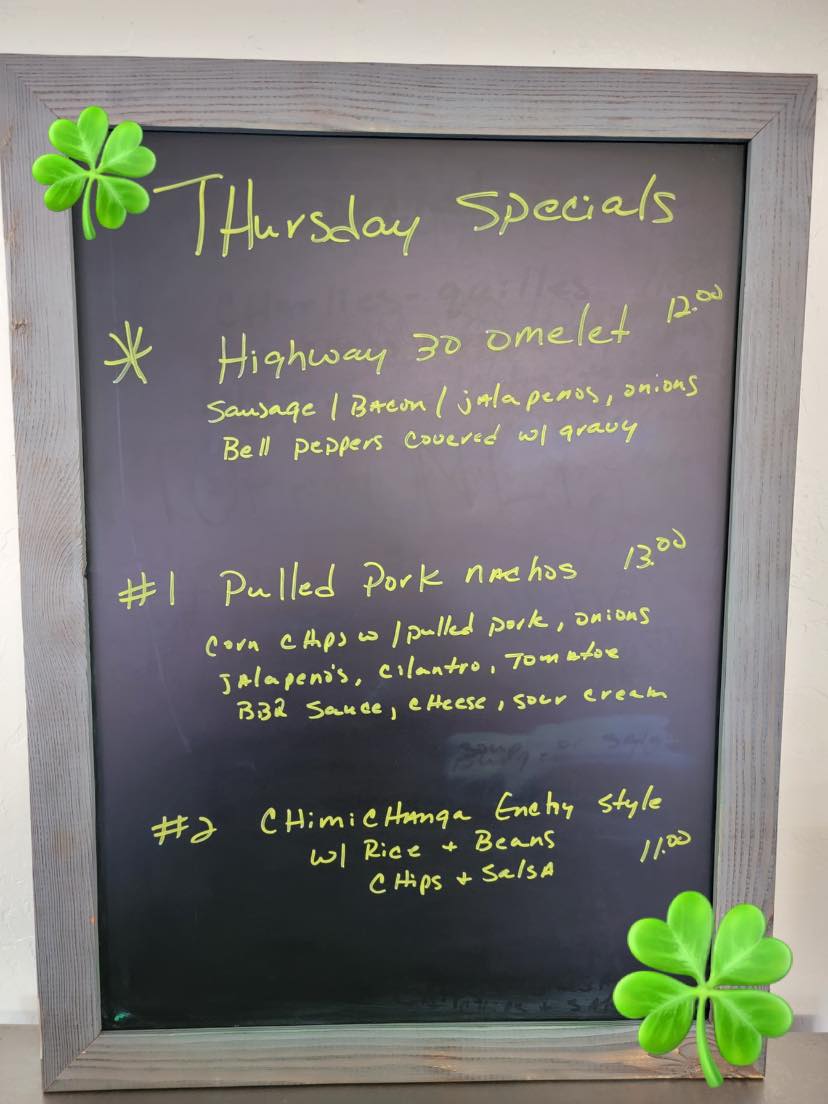 THursday Specials
* Highway 30 omelet 12.00
Sausage / BAcon / jAlapenos, onions
Bell peppers covered w/ gravy
#1 Pulled Pork nAchos 13.00
Corn cHips w/pulled pork, onions
JAlapeno's, cilantro, Tomatoe
BBQ Sauce, cHeese, sour cream
#2 CHimiCHAnga Enchy style
w/ Rice + Beans 11.00
CHips + SalsA